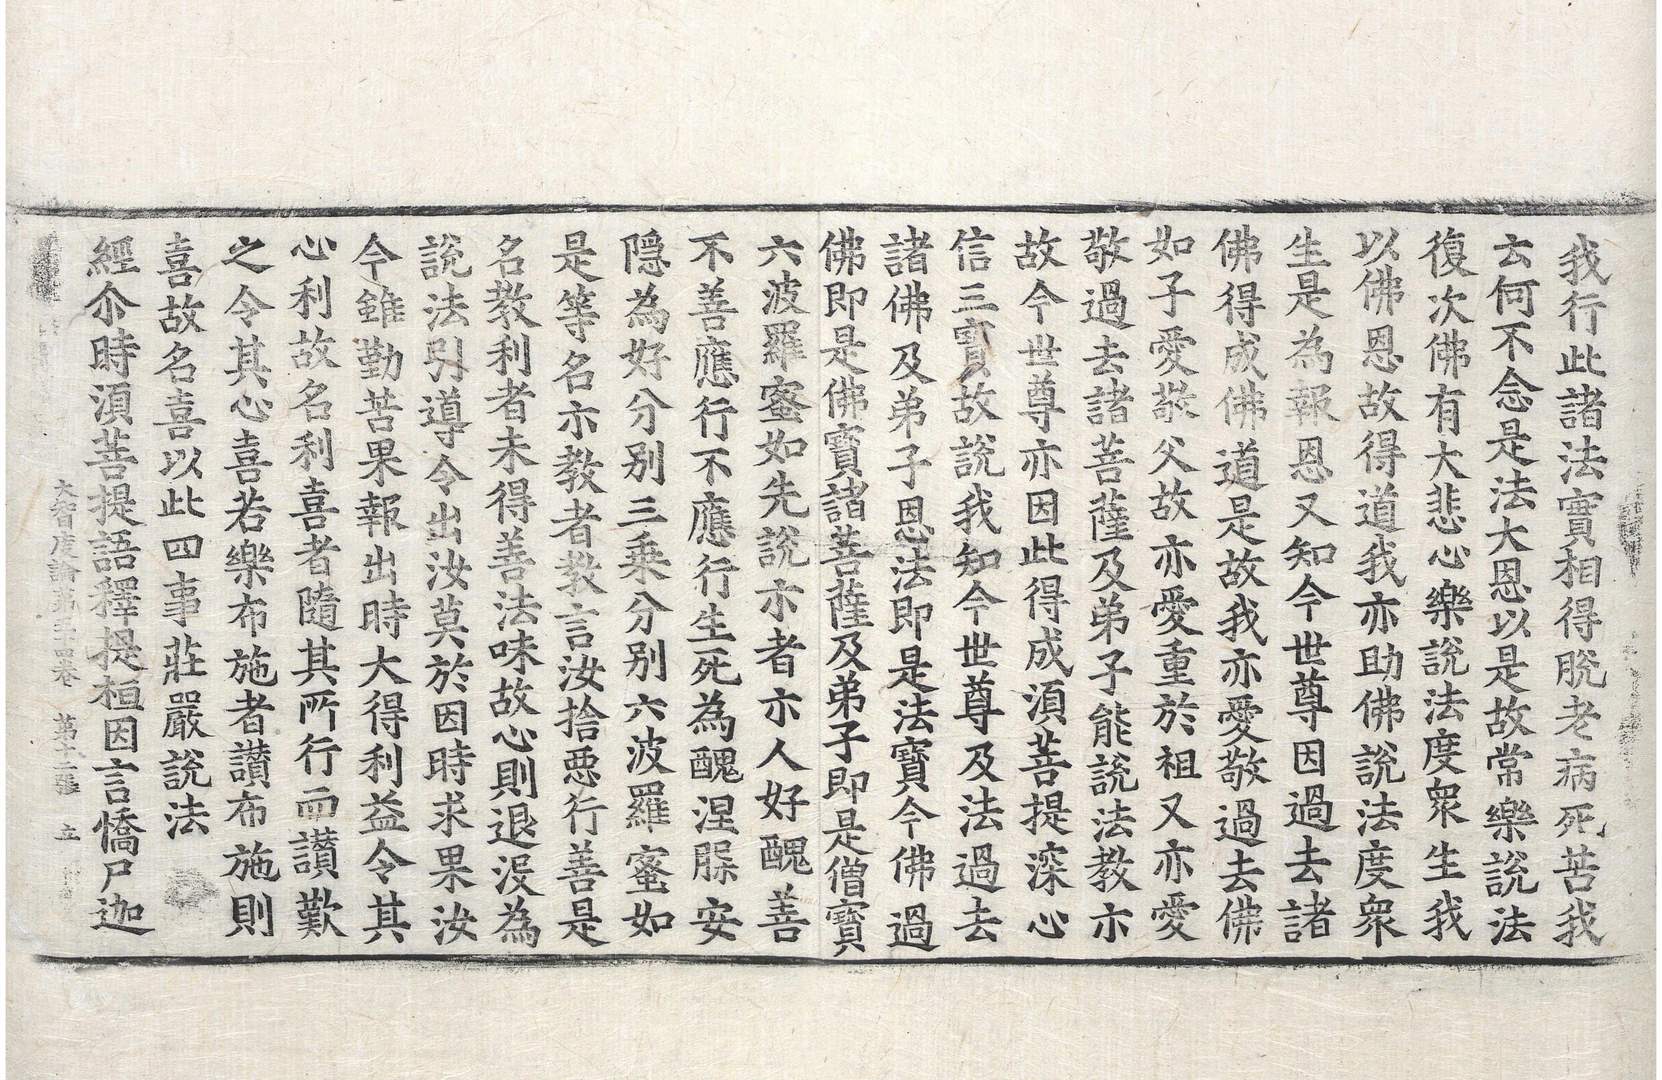 我行此諸法實相得脫老病死苦我
云何不念是法大恩以是故常樂說法
復次佛有大悲心樂說法度衆生我
以佛恩故得道我亦助佛說法度衆
生是為報恩又知今世尊因過去諸
佛得成佛道是故我亦愛敬過去佛
如子愛敬父故亦愛重於祖又亦愛
敬過去諸菩薩及弟子能說法教示
故今世尊亦因此得成湏菩提深心
信三寶故說我知今世尊及法過去
諸佛及弟子恩法即是法寶今佛過
佛即是佛寶諸菩薩及弟子即是僧寶
六波羅蜜如先說示者示人好醜善
不善應行不應行生死為醜涅槃安
隱為好分別三乘分別六波羅蜜如
是等名示教者教言汝捨惡行善是
名教利者未得善法味故心則退沒為
說法引導令出汝莫於因時求果汝
今雖勤苦果報出時大得利益令其
心利故名利喜者隨其所行而讃歎
之令其心喜若樂布施者讃布施則
喜故名喜以此四事莊嚴說法
經尒時湏菩提語釋提桓因言憍尸迦
大智度論第五十四卷　第十二張　立